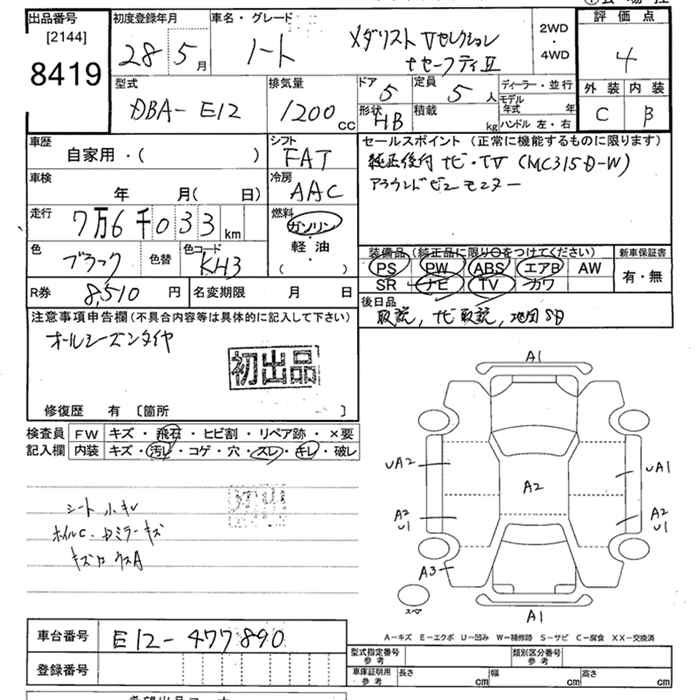 出品番号
[2144]
8419
初度登録年月
28 5月
車名・グレード
ノート メダリスト Vセレクション
+セーフティⅡ
2WD
・
4WD
評価点
4
外装 内装
C B
型式
DBA-E12
排気量
1200cc
ドア
5
定員
5人
形状
HB
積載
kg
ディーラー・並行
モデル年式 年
ハンドル 左・右
車歴
自家用・( )
シフト
FAT
車検
年 月( 日)
冷房
AAC
走行
7万6千033km
燃料
ガソリン
軽・油
・
( )
色
ブラック
色替
色コード
KH3
R券 8,510円
名変期限 月 日
セールスポイント(正常に機能するものに限ります)
純正後付ナビ・TV (MC315D-W)
アラウンドビューモニター
装備品(純正品に限り○をつけてください)
PS PW ABS エアB AW
SR ナビ TV カワ
新車保証書
有・無
後日品
取説, ナビ取説, 地図SD
注意事項申告欄(不具合内容等は具体的に記入して下さい)
オールシーズンタイヤ
初出品
修復歴 有 〔箇所 〕
検査員
記入欄
FW キズ・飛石・ヒビ割・リペア跡・×要
内装 キズ・汚レ・コゲ・穴・スレ・キレ・破レ
A1
UA2
UA1
A2
A2
U1
A2
U1
A3
A1
A―キズ E―エクボ U―凹み W―補修跡 S―サビ C―腐食 XX―交換済
車台番号 E12-477890
登録番号
型式指定番号
参考
類別区分番号
参考
車庫証明用
参考
長さ cm
幅 cm
高さ cm